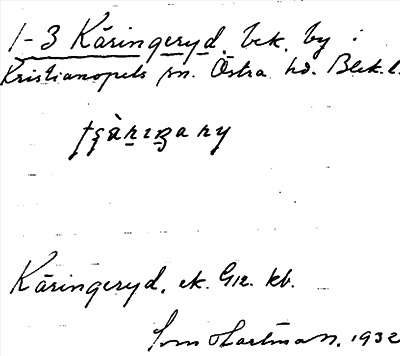 1-3 Käringeryd, bek. by i
Kristianopels sn. Östra hd. Blek. l.
Käringeryd, ek. G12. kb.
Sven Hartman, 1932